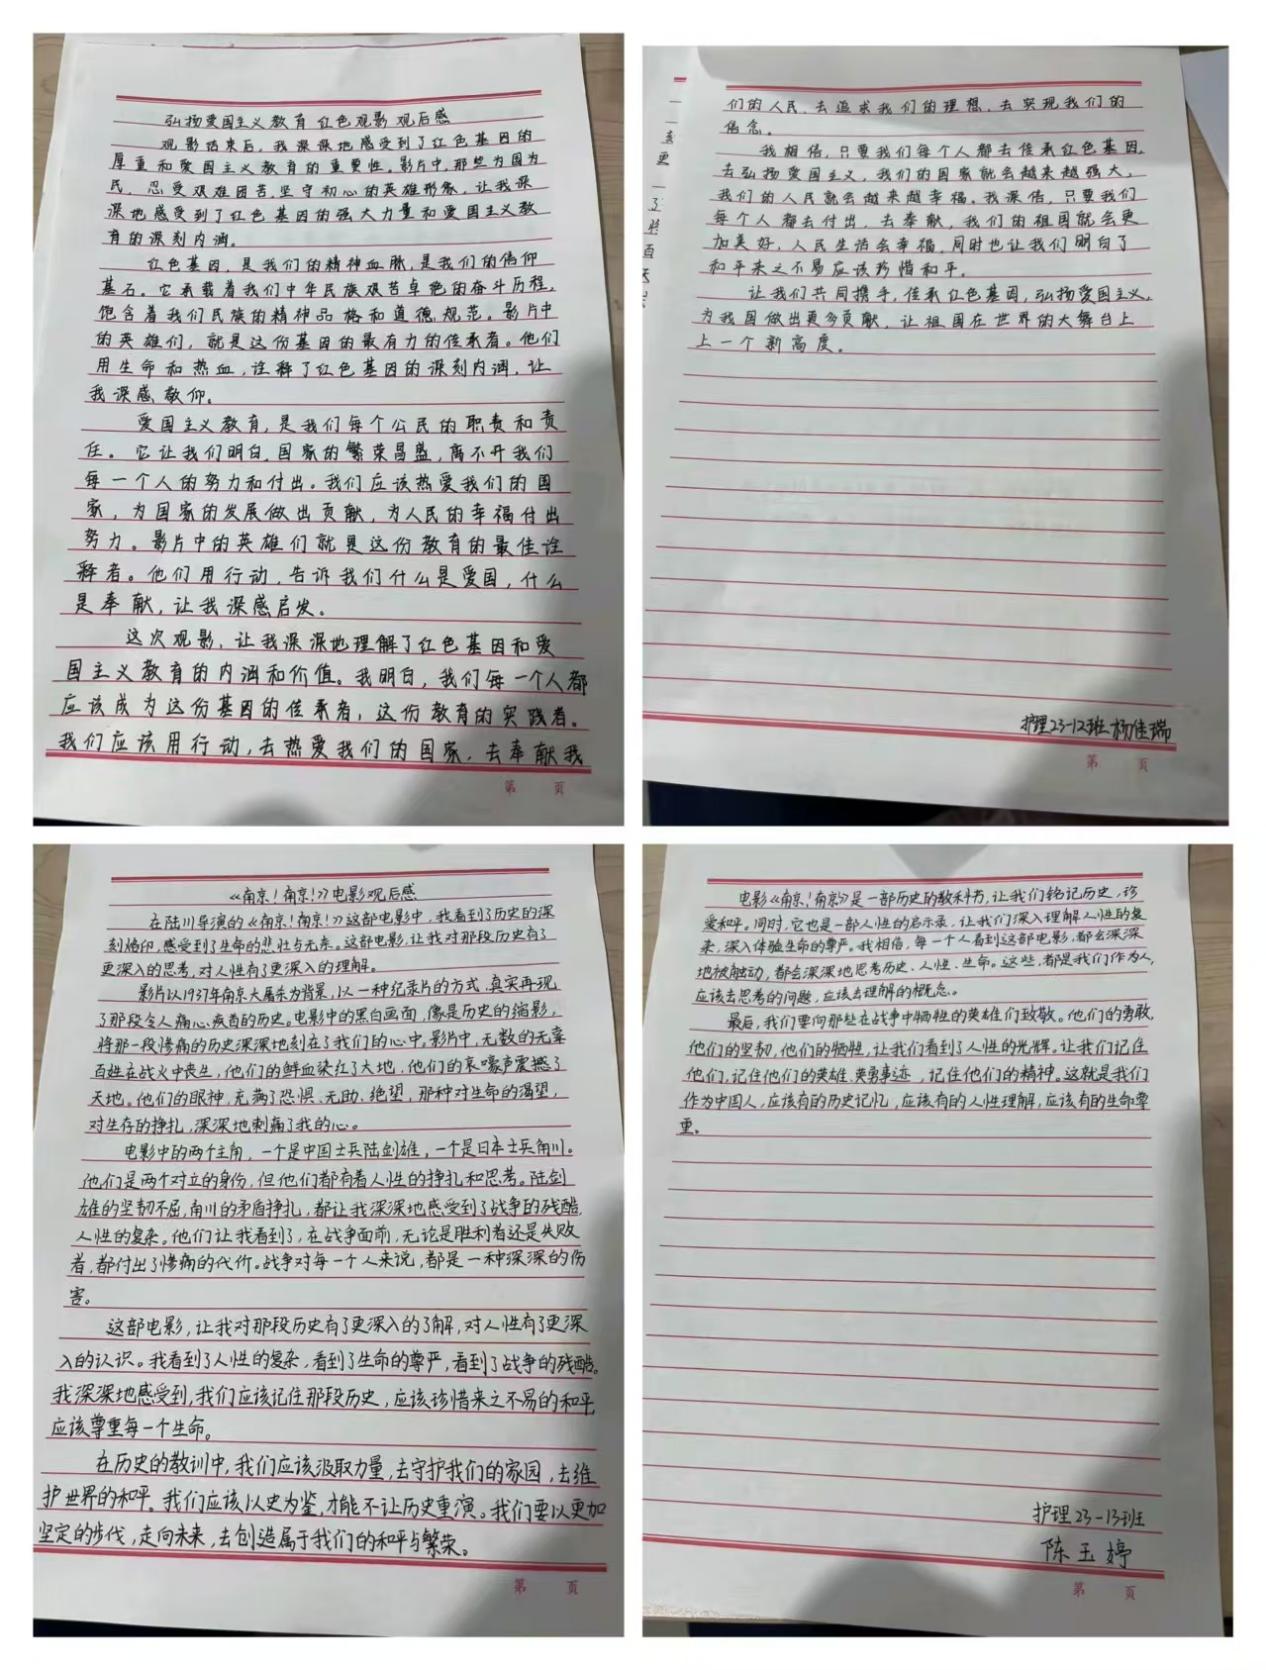 弘扬爱国主义教育红色观影观后感
观影结束后，我深深地感受到了红色基因的
厚重和爱国主义教育的重要性。影片中，那些为国为
民，忍受艰难困苦，坚守初心的英雄形象，让我深
深地感受到了红色基因的强大力量和爱国主义教
育的深刻内涵。
红色基因，是我们的精神血脉，是我们的信仰
基石。它承载着我们中华民族艰苦卓绝的奋斗历程，
饱含着我们民族的精神品格和道德规范。影片中
的英雄们，就是这份基因的最有力的传承者。他们
用生命和热血，诠释了红色基因的深刻内涵，让
我深感敬仰。
爱国主义教育，是我们每个公民的职责和责
任。它让我们明白，国家的繁荣昌盛，离不开我们
每一个人的努力和付出。我们应该热爱我们的国
家，为国家的发展做出贡献，为人民的幸福付出
努力。影片中的英雄们就是这份教育的最佳诠
释者。他们用行动，告诉我们什么是爱国，什么
是奉献，让我深感启发。
这次观影，让我深深地理解了红色基因和爱
国主义教育的内涵和价值。我明白，我们每一个人都
应该成为这份基因的传承者，这份教育的实践者。
我们应该用行动，去热爱我们的国家，去奉献我
第 页
们的人民，去追求我们的理想，去实现我们的
信念。
我相信，只要我们每个人都去传承红色基因，
去弘扬爱国主义，我们的国家就会越来越强大，
我们的人民就会越来越幸福。我深信，只要我们
每个人都去付出，去奉献，我们的祖国就会更
加美好，人民生活会幸福，同时也让我们明白了
和平来之不易应该珍惜和平。
让我们共同携手，传承红色基因，弘扬爱国主义，
为我国做出更多贡献，让祖国在世界的大舞台上
上一个新高度。
护理23-12班 杨佳瑞
第 页
《南京！南京！》电影观后感
在陆川导演的《南京！南京！》这部电影中，我看到了历史的深
刻烙印，感受到了生命的悲壮与无奈。这部电影，让我对那段历史有了
更深入的思考，对人性有了更深入的理解。
影片以1937年南京大屠杀为背景，以一种纪录片的方式，真实再现
了那段令人痛心疾首的历史。电影中的黑白画面，像是历史的缩影，
将那一段惨痛的历史深深地刻在了我们的心中。影片中，无数的无辜
百姓在战火中丧生，他们的鲜血染红了大地，他们的哀嚎声震撼了
天地。他们的眼神，充满了恐惧、无助、绝望，那种对生命的渴望，
对生存的挣扎，深深地刺痛了我的心。
电影中的两个主角，一个是中国士兵陆剑雄，一个是日本士兵角川。
他们是两个对立的身份，但他们都有着人性的挣扎和思考。陆剑
雄的坚韧不屈，角川的矛盾挣扎，都让我深深地感受到了战争的残酷，
人性的复杂。他们让我看到了，在战争面前，无论是胜利者还是失败
者，都付出了惨痛的代价。战争对每一个人来说，都是一种深深的伤
害。
这部电影，让我对那段历史有了更深入的了解，对人性有了更深
入的认识。我看到了人性的复杂，看到了生命的尊严，看到了战争的残酷。
我深深地感受到，我们应该记住那段历史，应该珍惜来之不易的和平，
应该尊重每一个生命。
在历史的教训中，我们应该汲取力量，去守护我们的家园，去维
护世界的和平。我们应该以史为鉴，才能不让历史重演。我们要以更加
坚定的步伐，走向未来，去创造属于我们的和平与繁荣。
第 页
电影《南京！南京》是一部历史的教科书，让我们铭记历史，珍
爱和平。同时，它也是一部人性的启示录，让我们深入理解人性的复
杂，深入体验生命的尊严。我相信，每一个人看到这部电影，都会深深
地被触动，都会深深地思考历史、人性、生命。这些，都是我们作为人，
应该去思考的问题，应该去理解的概念。
最后，我们要向那些在战争中牺牲的英雄们致敬。他们的勇敢，
他们的坚韧，他们的牺牲，让我们看到了人性的光辉。让我们记住
他们，记住他们的英雄、英勇事迹，记住他们的精神。这就是我们
作为中国人，应该有的历史记忆，应该有的人性理解，应该有的生命尊
重。
护理23-13班
陈玉婷
第 页